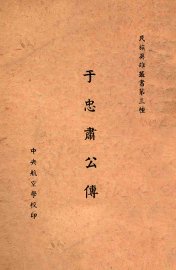 民族英雄叢書第三種
于忠肅公傳
中央航空學校印